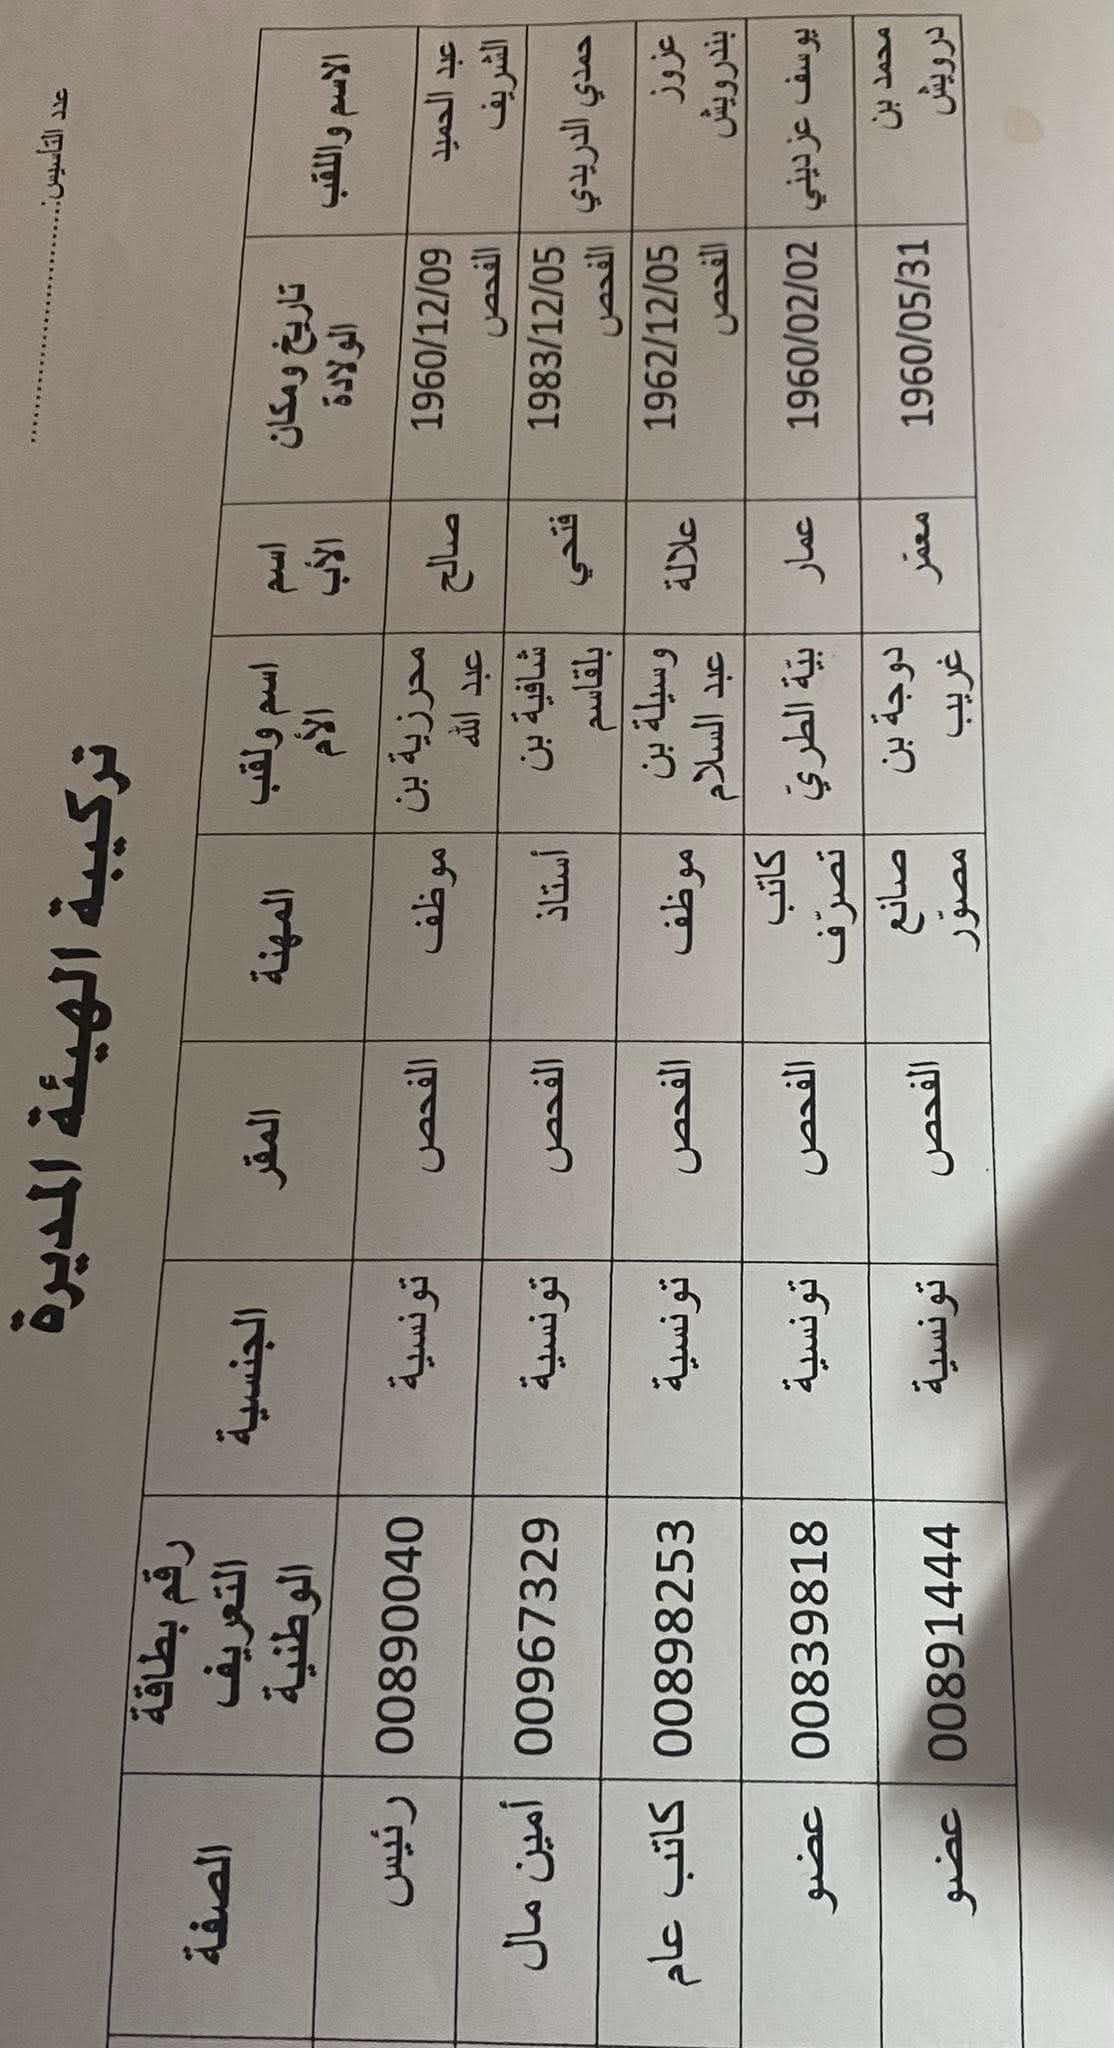 عدد التأسيس:....................
تركيبة الهيئة المديرة
الاسم واللقب تاريخ ومكان الولادة اسم الأب اسم ولقب الأم المهنة المقر الجنسية رقم بطاقة التعريف الوطنية الصفة
عبد الحميد الشريف 1960/12/09 الفحص صالح محرزية بن عبد الله موظف الفحص تونسية 00890040 رئيس
حمدي الدريدي 1983/12/05 الفحص فتحي شافية بن بلقاسم أستاذ الفحص تونسية 00967329 أمين مال
عزوز بندرويش 1962/12/05 الفحص علالة وسيلة بن عبد السلام موظف الفحص تونسية 00898253 كاتب عام
يوسف عزديني 1960/02/02 عمار بيّة الطريّ كاتب تصرّف الفحص تونسية 00839818 عضو
محمد بن درويش 1960/05/31 معمّر دوجة بن غريب صانع مصوّر الفحص تونسية 00891444 عضو